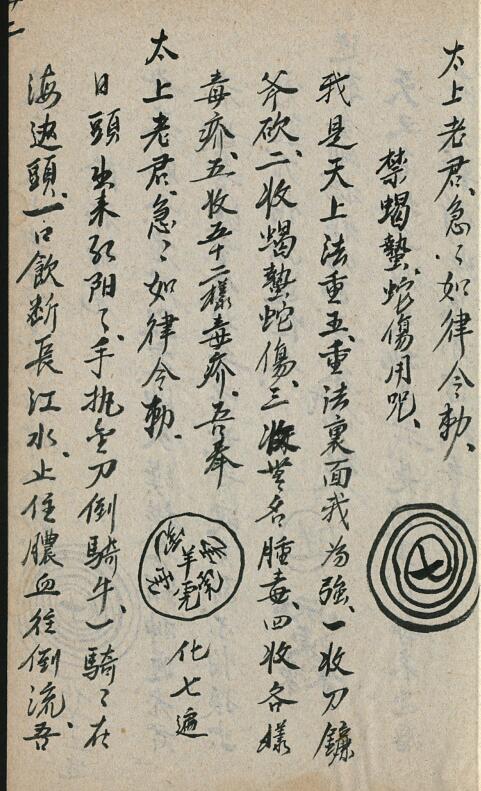 太上老君、急〻如律令勅、
禁蝎蟄、蛇傷用咒、
七
我是天上法重五、重法裏面我為強、一收刀鐮
斧砍、二收蝎蟄蛇傷、三收無名腫毒、四收各樣
毒疥、五收五十二樣毒疥、吾奉
太上老君、急〻如律令勅、
化七遍
日頭出來紅陽〻、手執金刀倒騎牛、一騎〻在
海边頭、一口飲斷長江水、止住膿血往倒流、吾